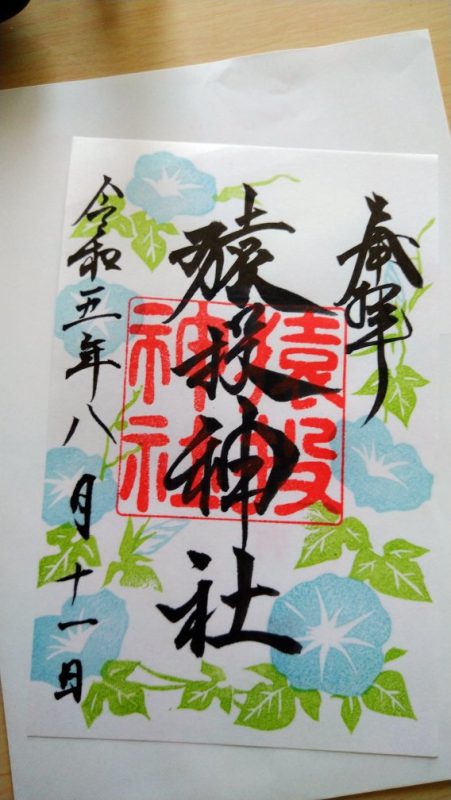 奉拝
猿投神社
猿投神社
令和五年八月十一日